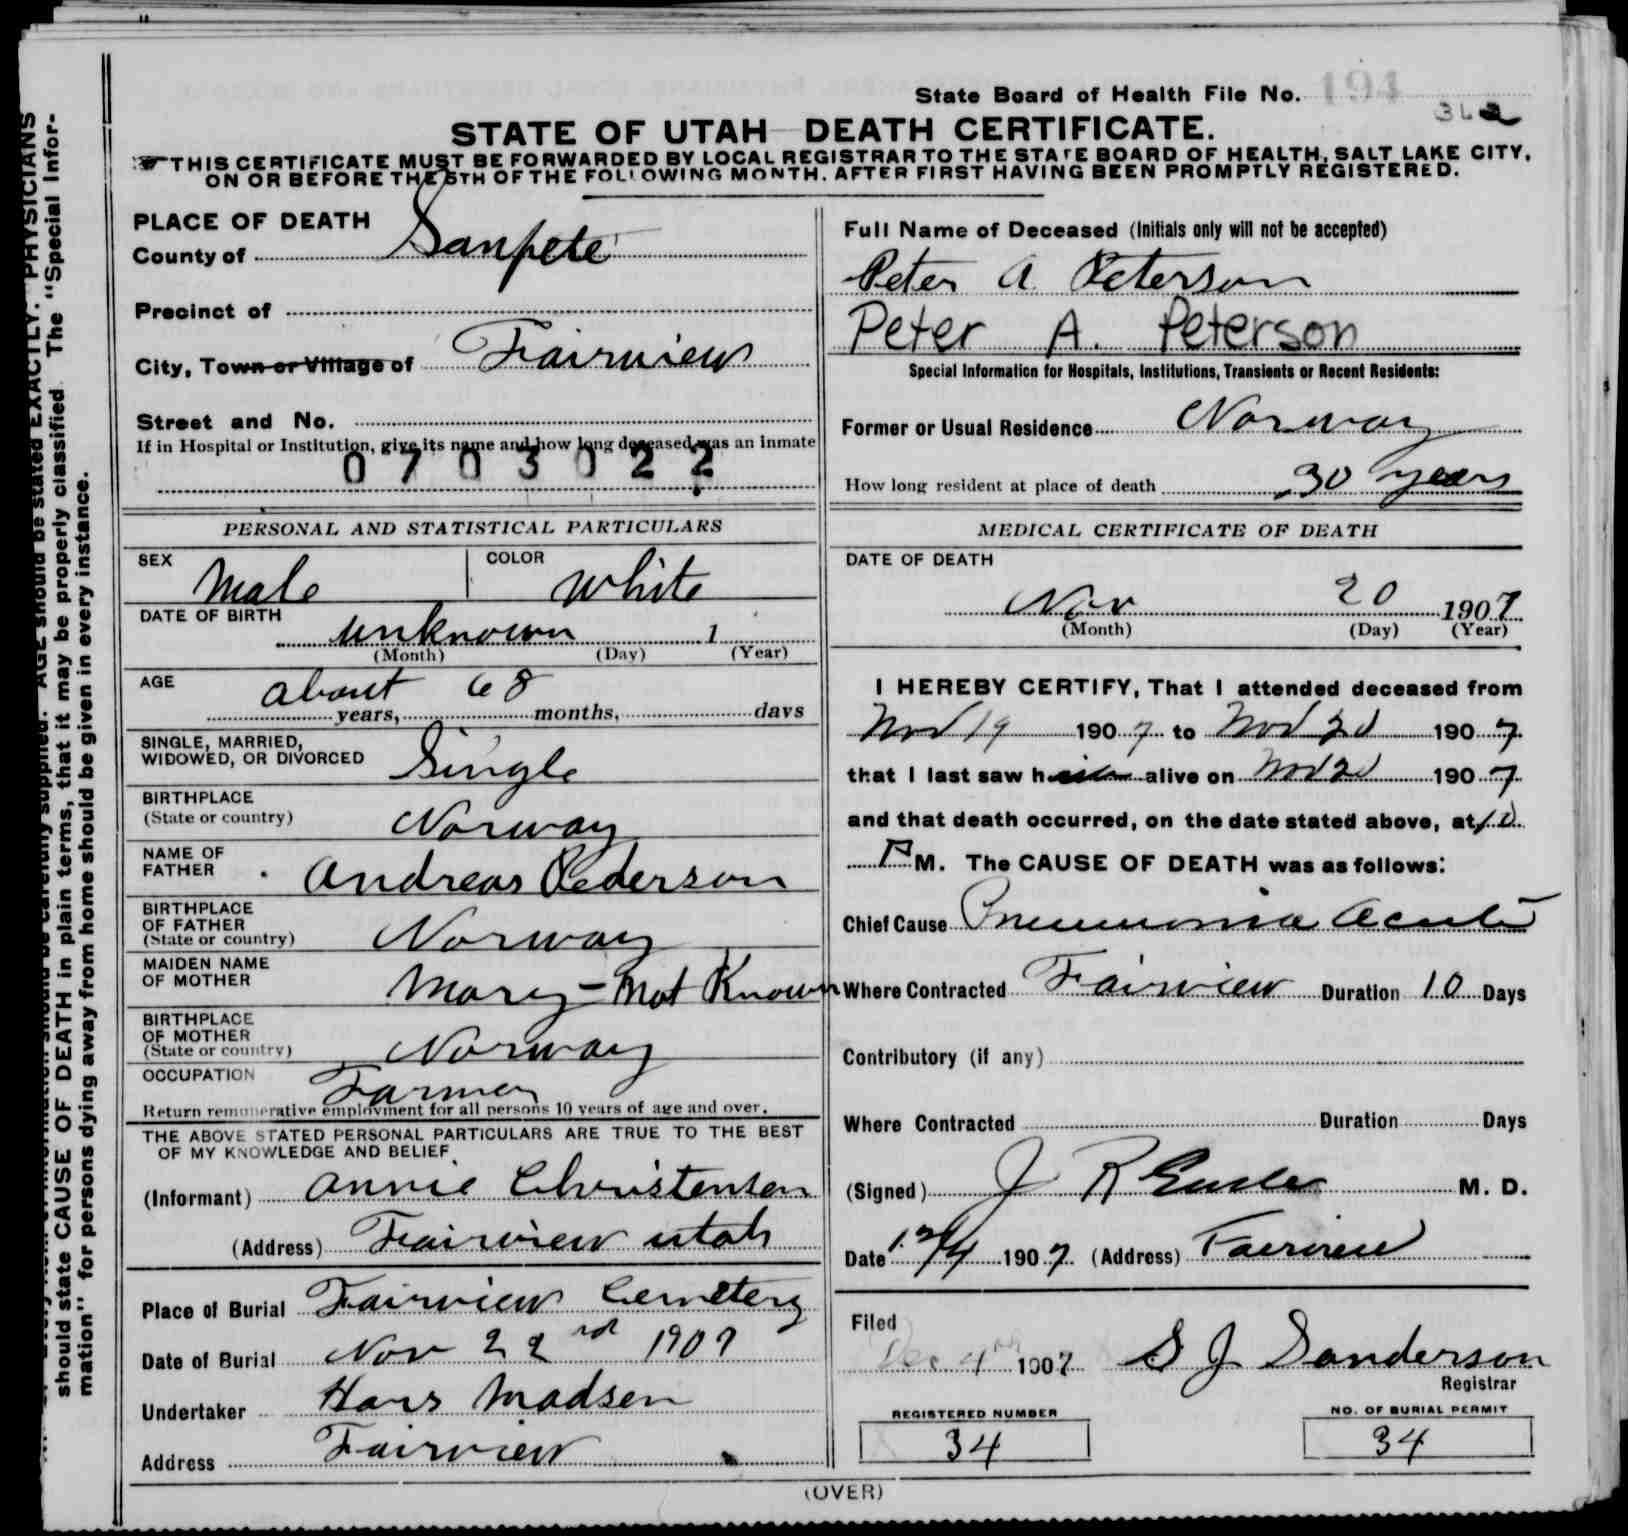 State Board of Health File No. 194
362
STATE OF UTAH DEATH CERTIFICATE.
THIS CERTIFICATE MUST BE FORWARDED BY LOCAL REGISTRAR TO THE STATE BOARD OF HEALTH, SALT LAKE CITY,
ON OR BEFORE THE 5TH OF THE FOLLOWING MONTH. AFTER FIRST HAVING BEEN PROMPTLY REGISTERED.
PLACE OF DEATH
County of Sanpete
Precinct of
City, Town or Village of Fairview
Street and No.
If in Hospital or Institution, give its name and how long deceased was an inmate
0703022
PERSONAL AND STATISTICAL PARTICULARS
SEX Male COLOR White
DATE OF BIRTH
unknown 1
(Month) (Day) (Year)
AGE about 68
years, months, days
SINGLE, MARRIED,
WIDOWED, OR DIVORCED Single
BIRTHPLACE
(State or country) Norway
NAME OF
FATHER Andreas Pederson
BIRTHPLACE
OF FATHER
(State or country) Norway
MAIDEN NAME
OF MOTHER Mary - Not Known
BIRTHPLACE
OF MOTHER
(State or country) Norway
OCCUPATION Farmer
Return remunerative employment for all persons 10 years of age and over.
THE ABOVE STATED PERSONAL PARTICULARS ARE TRUE TO THE BEST
OF MY KNOWLEDGE AND BELIEF
(Informant) Annie Christensen
(Address) Fairview Utah
Place of Burial Fairview Cemetery
Date of Burial Nov 22nd 1907
Undertaker Hans Madsen
Address Fairview
Full Name of Deceased (Initials only will not be accepted)
Peter A. Peterson
Peter A. Peterson
Special Information for Hospitals, Institutions, Transients or Recent Residents:
Former or Usual Residence Norway
How long resident at place of death 30 years
MEDICAL CERTIFICATE OF DEATH
DATE OF DEATH
Nov 20 1907
(Month) (Day) (Year)
I HEREBY CERTIFY, That I attended deceased from
Nov 19 1907 to Nov 20 1907
that I last saw him alive on Nov 20 1907
and that death occurred, on the date stated above, at 10
P M. The CAUSE OF DEATH was as follows:
Chief Cause Pneumonia Acute
Where Contracted Fairview Duration 10 Days
Contributory (if any)
Where Contracted Duration Days
(Signed) J R M. D.
Date 12/4 1907 (Address) Fairview
Filed
Dec 4th 1907 S J Sanderson
Registrar
REGISTERED NUMBER
34
NO. OF BURIAL PERMIT
34
(OVER)
AGE should be stated EXACTLY. PHYSICIANS
should state CAUSE OF DEATH in plain terms, that it may be properly classified. The "Special Infor-
mation" for persons dying away from home should be given in every instance.